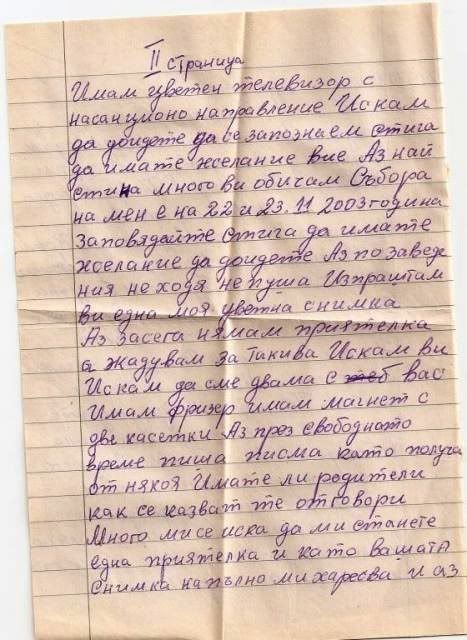 II страница
Имам цветен телевизор с
насанционо направление Искам
да дойдете да се запознаем стига
да имате желание вие Аз най
стина много ви обичам Събора
на мен е на 22 и 23.11 2003 година
Заповядайте стига да имате
желание да дойдете Аз по заведе
ния не ходя не пуша Изпраштам
ви една моя цветна снимка
Аз засега нямам приятелка
а жадувам за такива Искам ви
Искам да сме двама с вас
Имам фризер имам магнет с
две касетки Аз през свободнато
време пиша писма като получа
от някоя Имате ли родители
как се казват те отговори
Много ми се иска да ми станете
една приятелка и като вашата
снимка напълно ми харесва и аз